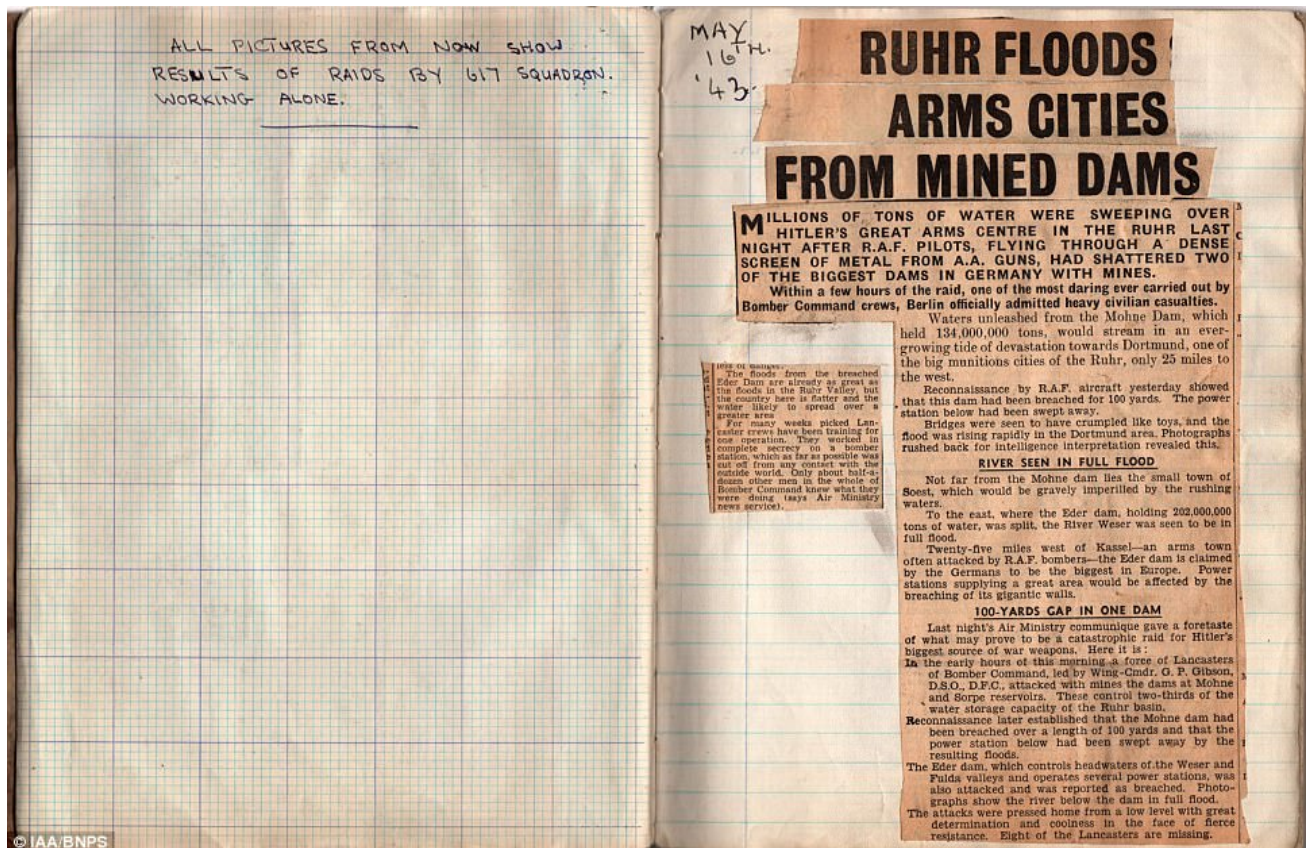 ALL PICTURES FROM NOW SHOW
RESULTS OF RAIDS BY 617 SQUADRON.
WORKING ALONE.
MAY
16TH.
'43.
RUHR FLOODS
ARMS CITIES
FROM MINED DAMS
MILLIONS OF TONS OF WATER WERE SWEEPING OVER
HITLER'S GREAT ARMS CENTRE IN THE RUHR LAST
NIGHT AFTER R.A.F. PILOTS, FLYING THROUGH A DENSE
SCREEN OF METAL FROM A.A. GUNS, HAD SHATTERED TWO
OF THE BIGGEST DAMS IN GERMANY WITH MINES.
Within a few hours of the raid, one of the most daring ever carried out by
Bomber Command crews, Berlin officially admitted heavy civilian casualties.
Waters unleashed from the Mohne Dam, which
held 134,000,000 tons, would stream in an ever-
growing tide of devastation towards Dortmund, one of
the big munitions cities of the Ruhr, only 25 miles to
the west.
Reconnaissance by R.A.F. aircraft yesterday showed
that this dam had been breached for 100 yards. The power
station below had been swept away.
Bridges were seen to have crumpled like toys, and the
flood was rising rapidly in the Dortmund area. Photographs
rushed back for intelligence interpretation revealed this.
RIVER SEEN IN FULL FLOOD
Not far from the Mohne dam lies the small town of
Soest, which would be gravely imperilled by the rushing
waters.
To the east, where the Eder dam, holding 202,000,000
tons of water, was split, the River Weser was seen to be in
full flood.
Twenty-five miles west of Kassel—an arms town
often attacked by R.A.F. bombers—the Eder dam is claimed
by the Germans to be the biggest in Europe. Power
stations supplying a great area would be affected by the
breaching of its gigantic walls.
100-YARDS GAP IN ONE DAM
Last night's Air Ministry communique gave a foretaste
of what may prove to be a catastrophic raid for Hitler's
biggest source of war weapons. Here it is:
In the early hours of this morning a force of Lancasters
of Bomber Command, led by Wing-Cmdr. G. P. Gibson,
D.S.O., D.F.C., attacked with mines the dams at Mohne
and Sorpe reservoirs. These control two-thirds of the
water storage capacity of the Ruhr basin.
Reconnaissance later established that the Mohne dam had
been breached over a length of 100 yards and that the
power station below had been swept away by the
resulting floods.
The Eder dam, which controls headwaters of the Weser and
Fulda valleys and operates several power stations, was
also attacked and was reported as breached. Photo-
graphs show the river below the dam in full flood.
The attacks were pressed home from a low level with great
determination and coolness in the face of fierce
resistance. Eight of the Lancasters are missing.
The floods from the breached
Eder Dam are already as great as
the floods in the Ruhr Valley, but
the country here is flatter and the
water likely to spread over a
greater area
For many weeks picked Lan-
caster crews have been training for
one operation. They worked in
complete secrecy on a bomber
station, which as far as possible was
cut off from any contact with the
outside world. Only about half-a-
dozen other men in the whole of
Bomber Command knew what they
were doing (says Air Ministry
news service).
© IAA/BNPS